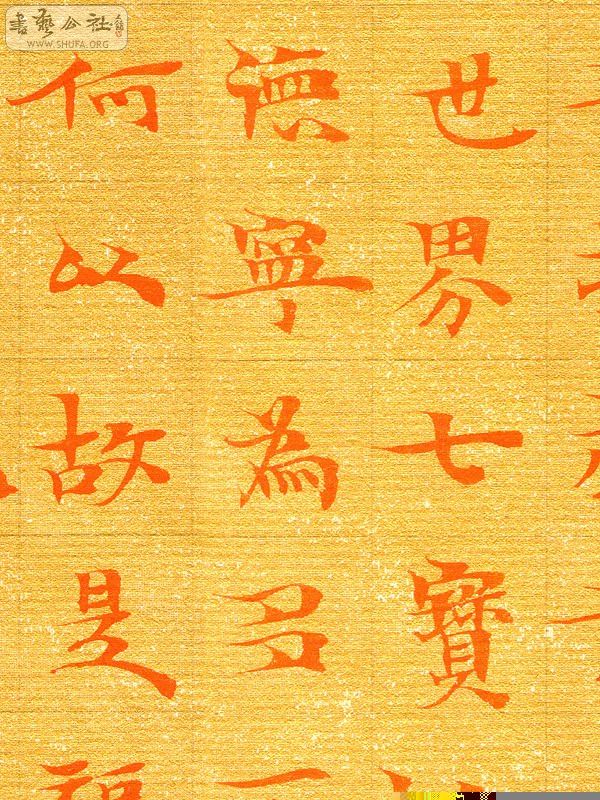 書藝公社
WWW.SHUFA.ORG
世界七寶
德寧為多
何以故是福